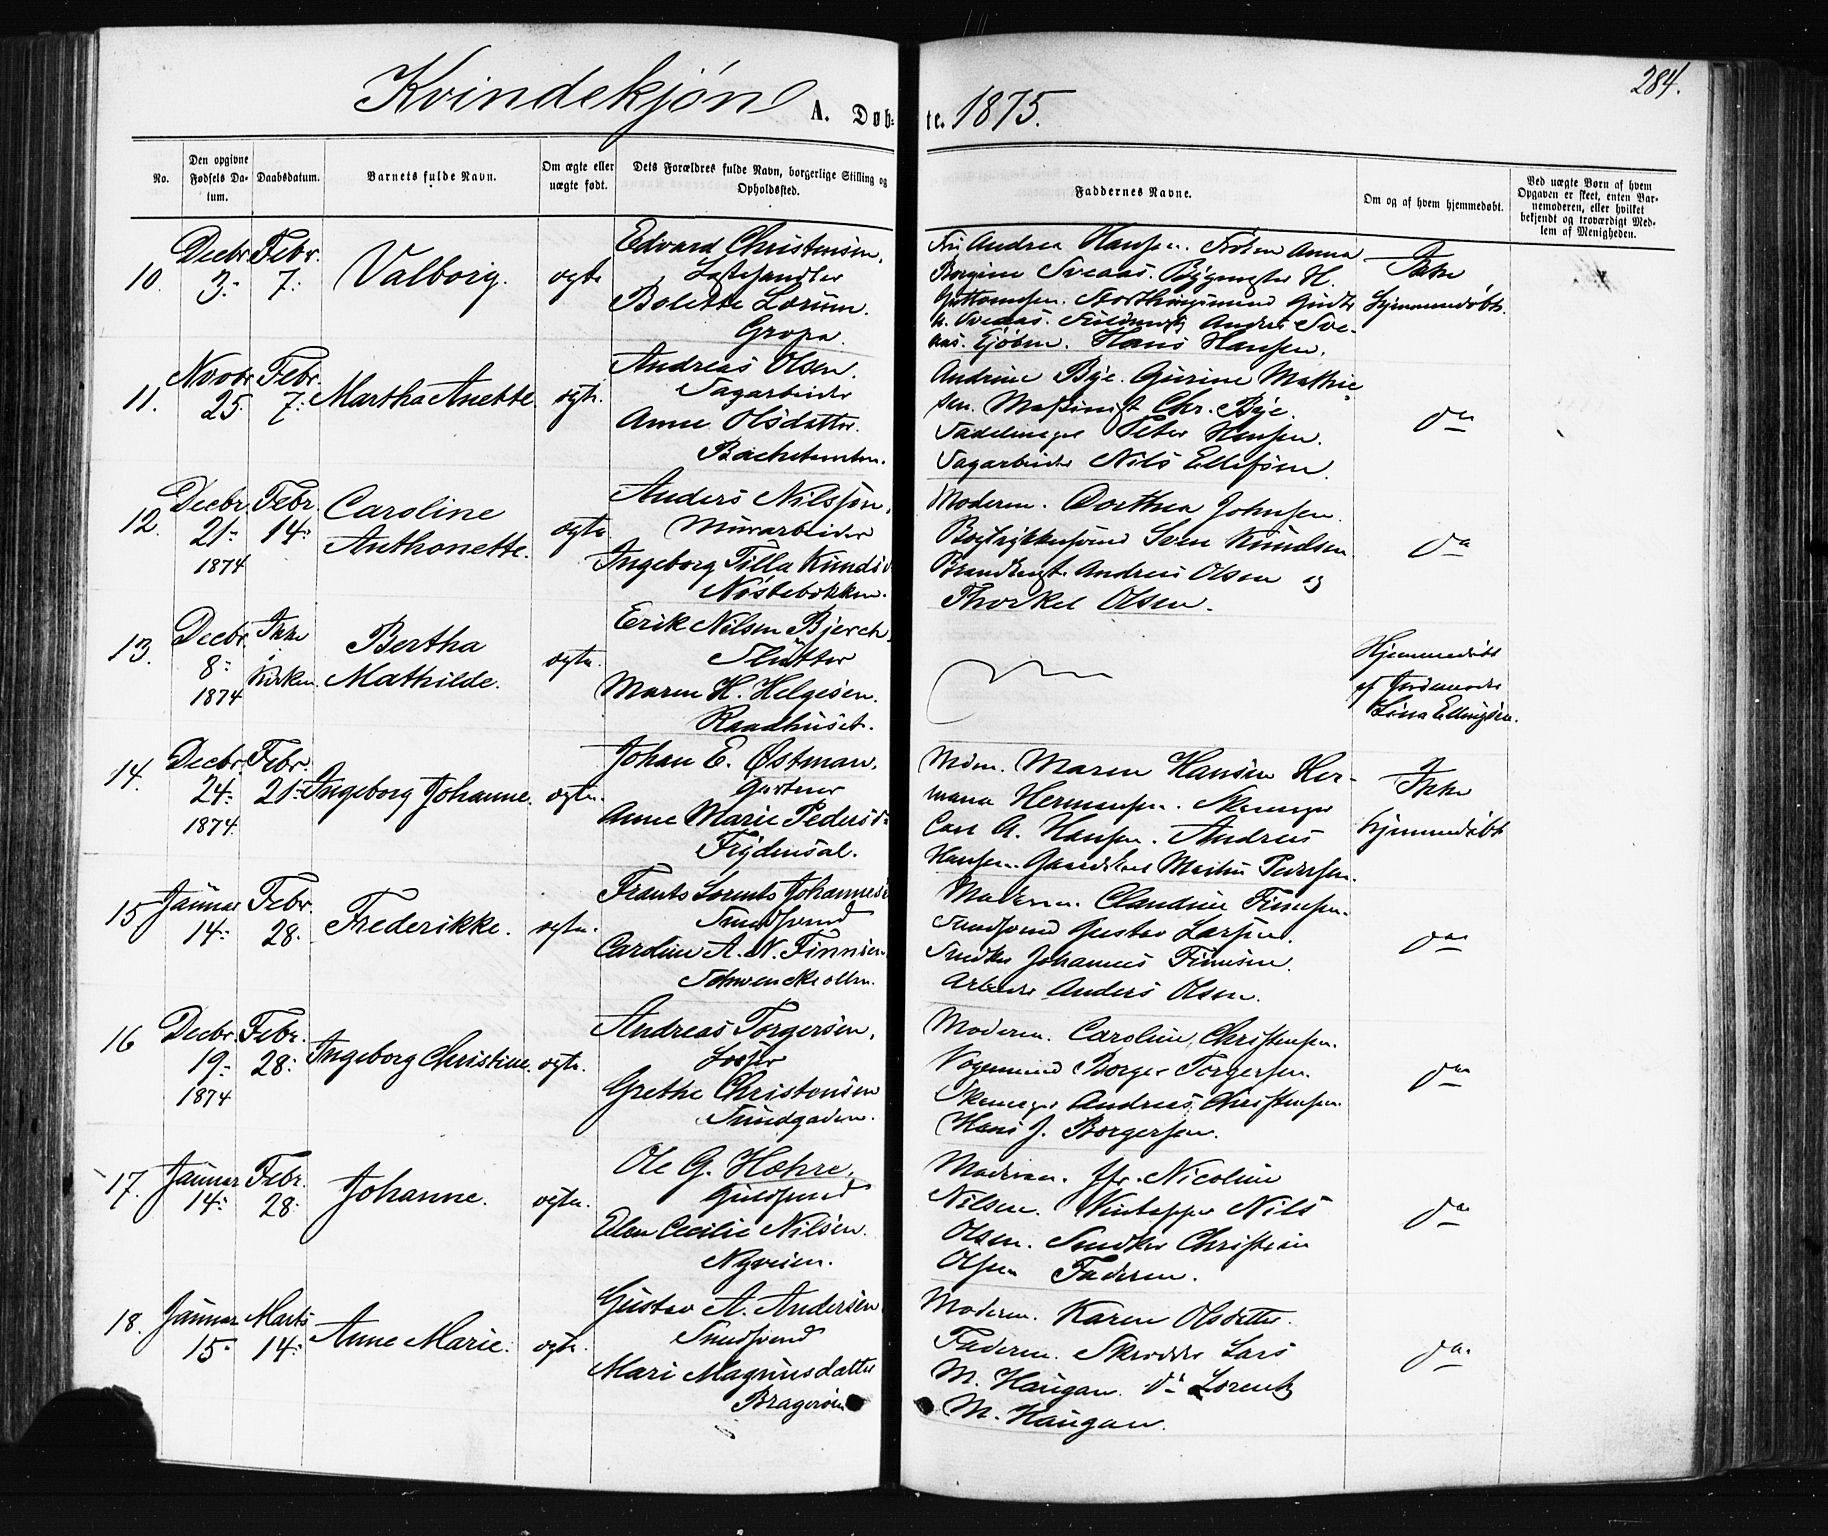 Kvindekjøn A. Døb-
te. 1875.
284.
No.
Den opgivne Fødsels Da-
tum.
Daabsdatum.
Barnets fulde Navn.
Om ægte eller uægte født.
Dets Forældres fulde Navn, borgerlige Stilling og Opholdssted.
Faddernes Navne.
Om og af hvem hjemmedøbt.
Ved uægte Børn af hvem Opgaven er skeet, enten Bar-
nemoderen, eller hvilket bekjendt og troværdigt Med-
lem af Menigheden.
10. Decbr 3. Febr. 7. Valborg. ægte
Edvard Christensen,
Bolette Lorum.
Gropa.
Andrea Hansen. Frøken Anna
Borgine Sveaas. Bygmester H.
Guttormsen. Storthingsmand
Sveaas. Andreas Sve-
aas. Hans Hansen.
Ikke
hjemmedøbt.
11. Novbr 25. Febr. 7. Martha Anette ægte.
Andreas Olsen.
Sagarbeider
Anne Olsdatter.
Andrine Bye. Gurine Mathie-
sen. Maskinist Chr. Bye.
Sadelmager Peter Hansen.
Sagarbeider Nils Ellefsen.
do
12. Decbr. 21. 1874 Febr. 14. Caroline
Anthonette. ægte
Anders Nilssøn,
Murarbeider
Ingeborg Tilla Knudsd.
Nøstebækken.
Moderen. Dorthea Johnsen.
Bogtrykkersvend Sven Knudsen
Andreas Olsen og
Thorkel Olsen.
do
13. Decbr. 8. 1874 Ikke i Kirken. Bertha
Mathilde. ægte.
Erik Nilsen Bjerch.
Slutter
Maren H. Helgesen.
Raadhuset.
Hjemmedøbt
af Jordemoder
Lina Ellingsen.
14. Decbr. 24. 1874. Febr. 21. Ingeborg Johanne. ægte.
Johan E. Østman.
Gartner
Anne Marie Pedersd.
Frydensal.
Mdm. Maren Hansen Her-
mana Hermansen. Skomager
Carl A. Hansen. Andreas
Hansen. Gaardskarl Martin Pedersen.
Ikke
hjemmedøbt
15. Januar 14. Febr. 28. Frederikke. ægte.
Frants Lorents Johannesen
Smedsvend
Caroline A. N. Finnsen.
Schwenckevollen.
Moderen. Claudine Finnsen.
Smedsvend Gustav Larsen.
Snedker Johannes Finnsen.
Arbeider Anders Olsen.
do
16 Decbr. 19. 1874 Febr. 28. Ingeborg Christine. ægte.
Andreas Torgersen.
Grethe Christensen
Smedgaden.
Moderen. Caroline Christensen.
Vognmand Borger Torgersen.
Skomager Andreas Christensen.
Hans J. Borgersen.
do
17. Januar 14. Febr. 28. Johanne. ægte.
Ole G. Hæhre,
Guldsmed
Elen Cecilie Nilsen.
Nyveien.
Moderen. Jfr. Nicoline
Nilsen. Vintapper Nils
Olsen. Snedker Christian
Olsen Faderen.
do
18. Januar 15. Marts 14. Anne Marie. ægte.
Gustav A. Andersen
Smedsvend
Mari Magnusdatter
Bragerøen
Moderen. Karen Olsdatter.
Faderen. Skrædder Lars
M. Haugan. do Lorentz
M. Haugan.
do